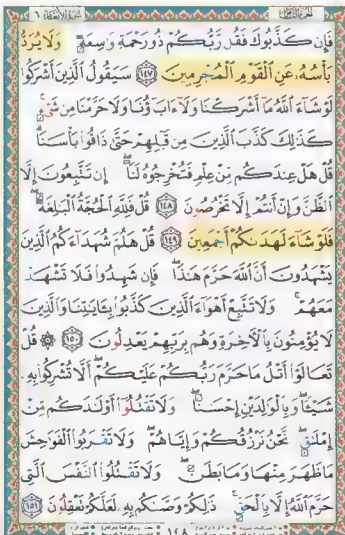 سورة الأنعام ٦
فَإِن كَذَّبُوكَ فَقُل رَّبُّكُمْ ذُو رَحْمَةٍ وَٰسِعَةٍ وَلَا يُرَدُّ
بَأْسُهُۥ عَنِ ٱلْقَوْمِ ٱلْمُجْرِمِينَ ١٤٧ سَيَقُولُ ٱلَّذِينَ أَشْرَكُوا۟
لَوْ شَآءَ ٱللَّهُ مَآ أَشْرَكْنَا وَلَآ ءَابَآؤُنَا وَلَا حَرَّمْنَا مِن شَىْءٍ ۚ
كَذَٰلِكَ كَذَّبَ ٱلَّذِينَ مِن قَبْلِهِمْ حَتَّىٰ ذَاقُوا۟ بَأْسَنَا ۗ
قُلْ هَلْ عِندَكُم مِّنْ عِلْمٍ فَتُخْرِجُوهُ لَنَآ ۖ إِن تَتَّبِعُونَ إِلَّا
ٱلظَّنَّ وَإِنْ أَنتُمْ إِلَّا تَخْرُصُونَ ١٤٨ قُلْ فَلِلَّهِ ٱلْحُجَّةُ ٱلْبَٰلِغَةُ ۖ
فَلَوْ شَآءَ لَهَدَىٰكُمْ أَجْمَعِينَ ١٤٩ قُلْ هَلُمَّ شُهَدَآءَكُمُ ٱلَّذِينَ
يَشْهَدُونَ أَنَّ ٱللَّهَ حَرَّمَ هَٰذَا ۖ فَإِن شَهِدُوا۟ فَلَا تَشْهَدْ
مَعَهُمْ ۚ وَلَا تَتَّبِعْ أَهْوَآءَ ٱلَّذِينَ كَذَّبُوا۟ بِـَٔايَٰتِنَا وَٱلَّذِينَ
لَا يُؤْمِنُونَ بِٱلْـَٔاخِرَةِ وَهُم بِرَبِّهِمْ يَعْدِلُونَ ١٥٠ ۞ قُلْ
تَعَالَوْا۟ أَتْلُ مَا حَرَّمَ رَبُّكُمْ عَلَيْكُمْ ۖ أَلَّا تُشْرِكُوا۟ بِهِۦ
شَيْـًٔا ۖ وَبِٱلْوَٰلِدَيْنِ إِحْسَٰنًا ۖ وَلَا تَقْتُلُوٓا۟ أَوْلَٰدَكُم مِّنْ
إِمْلَٰقٍ ۖ نَّحْنُ نَرْزُقُكُمْ وَإِيَّاهُمْ ۖ وَلَا تَقْرَبُوا۟ ٱلْفَوَٰحِشَ
مَا ظَهَرَ مِنْهَا وَمَا بَطَنَ ۖ وَلَا تَقْتُلُوا۟ ٱلنَّفْسَ ٱلَّتِى
حَرَّمَ ٱللَّهُ إِلَّا بِٱلْحَقِّ ۚ ذَٰلِكُمْ وَصَّىٰكُم بِهِۦ لَعَلَّكُمْ تَعْقِلُونَ ١٥١
١٤٨